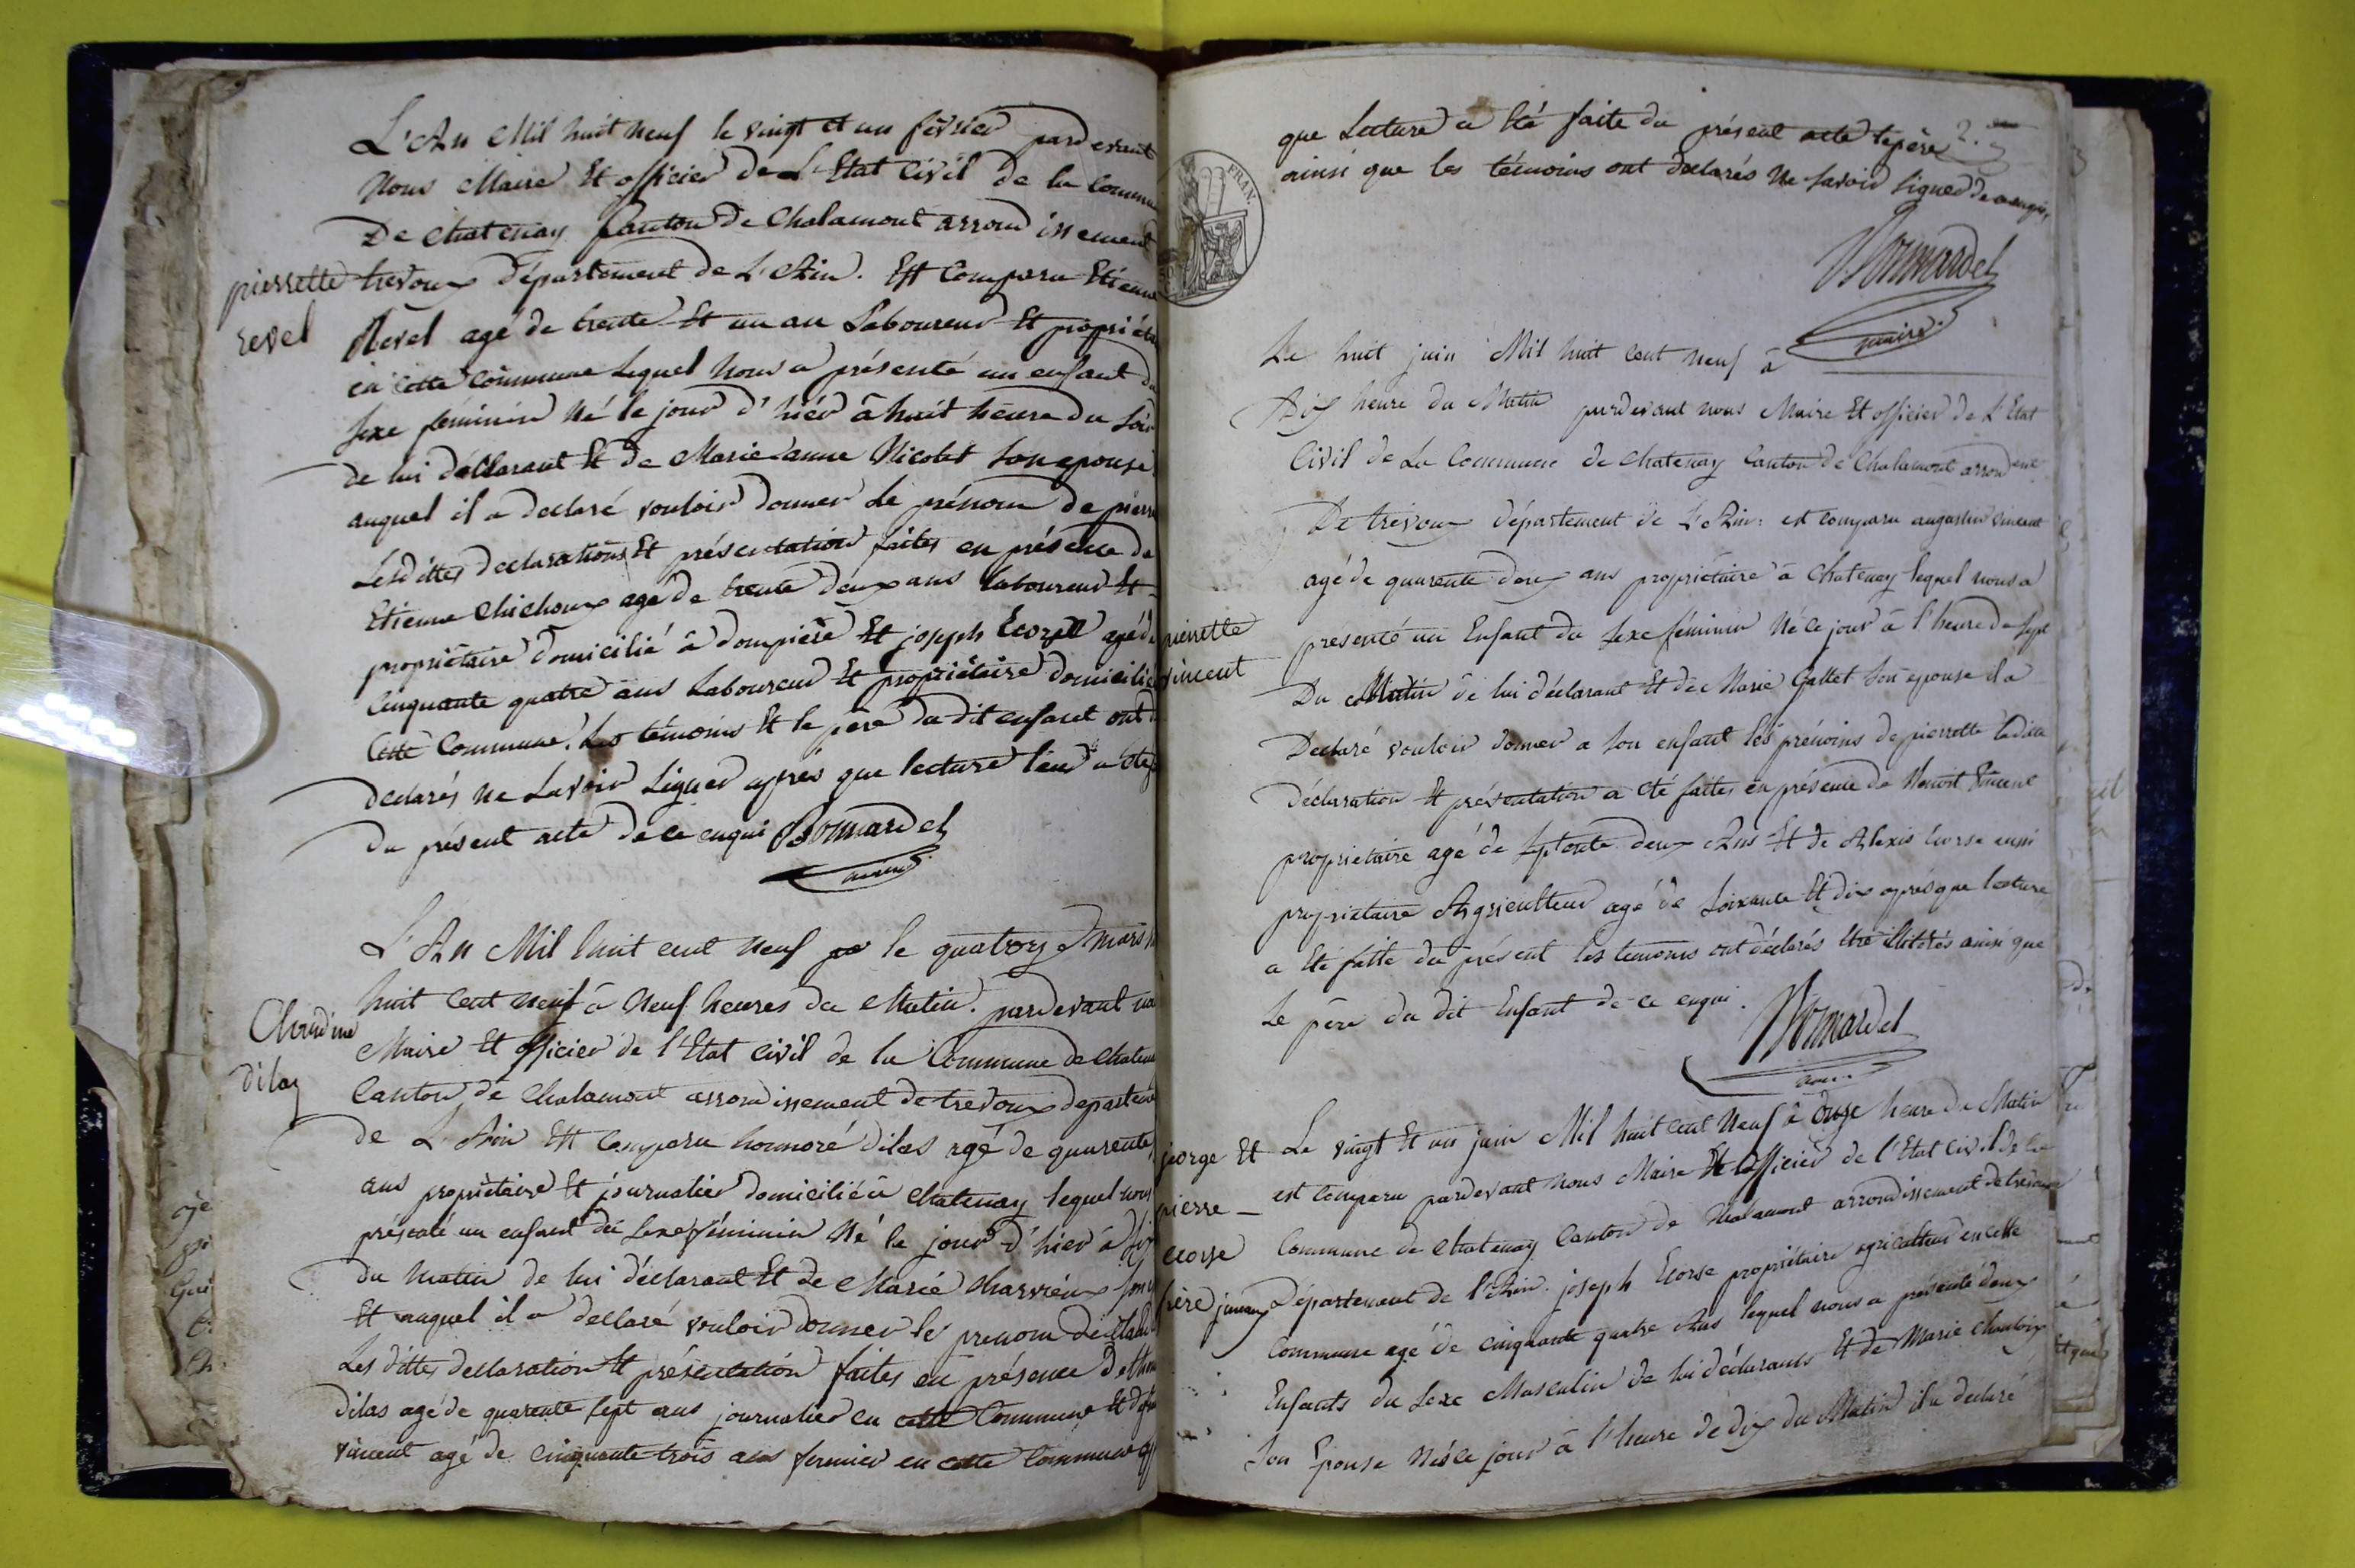 L'An Mil huit neuf le vingt et un février pardevant
Nous Maire Et officier de L'Etat Civil de la Commune
De Chatenay Canton de Chalamont arrondissement
pierrette
revel
trevoux Département de L'Ain. Est Comparu Etienne
Revel agé de trente Et un an Laboureur Et propriétai
en cette Commune Lequel Nous a présenté un enfant du
sexe féminin Né le jour d'hiér à huit heure du soir
de lui déclarant Et de Marie anne Nicolet son epouse
auquel il a declaré vouloir donner le prénom de pierre
Lesdittes declarations Et présentation faites en présence de
Etienne Chichoux agé de trente deux ans laboureur Et
propriétaire domicilié à dompière Et joseph Ecorse agé de
Cinquante quatre ans Laboureur Et propriétaire domicilié
Cette Commune. Les témoins Et le père du dit enfant ont
declarés Ne Savoir Signer après que lecture leur a été
du présent acte de ce enqui Bonnardel
maire
L'An Mil huit cent Neuf le quatorze Mars
huit Cent Neuf à Neuf heures du Matin. pardevant
Claudine
dilas
Maire Et officier de l'Etat Civil de la Commune de Chatenay
Canton de Chalamont arrondissement de trevoux departem
de L'Ain Est Comparu honnoré dilas agé de quarente
ans propriétaire Et journalier domicilié à Chatenay lequel nous
présenté un enfant du Sexe féminin Né le jour d'hier à dix
du Matin de lui déclarant Et de Marie Charvieux
Et auquel il a declaré vouloir donner le prenom de
Les dittes declaration Et présentation faites en présence
dilas agé de quarente sept ans journalier en cette Commune Et
vincent agé de cinquante trois ans fermier en cette Commune
que Lecture a Eté faite du présent acte le père
ainsi que les témoins ont declarés Ne Savoir Signer de ce enqui
Bonnardel
maire
FRAN.
Le huit juin Mil huit Cent Neuf à
Dix heure du Matin pardevant nous Maire Et officier de L'Etat
Civil de La Commune de Chatenay Canton de Chalamont arrondent
De trevoux département de L'Ain: est comparu augustin vincent
agé de quarente deux ans propriétaire à Chatenay lequel nous a
pierrette
vincent
presenté un Enfant du Sexe féminin Né ce jour à l'heure de sept
Du Matin de lui déclarant Et de Marie Gallet Son epouse il a
Declaré vouloir donner a son enfant les prénoms de pierrette ladite
Déclaration Et présentation a été faites en présence de Benoist Vincent
propriétaire agé de septente deux Ans Et de Alexis Ecorse aussi
propriétaire Agriculteur agé de Soixante Et dix après que lecture
a Eté faite du présent les temoins ont déclarés Etre illitérés ainsi que
Le père du dit Enfant de ce enqui.
Bonnardel
maire
jeorge Et
pierre
ecorse
frère jumeaux
Le vingt Et un juin Mil huit cent Neuf à Onze heure du Matin
est Comparu pardevant nous Maire Et Officier de l'Etat Civil de la
Commune de Chatenay Canton de Chalamont arrondissement de trevoux
Département de l'Ain. joseph Ecorse propriétaire agriculteur en cette
Commune agé de cinquante quatre Ans lequel nous a présenté deux
Enfants du Sexe Masculin de lui déclarants Et de Marie Chanteix
Son Epouse Nés ce jour à l'heure de dix du Matin il a declaré